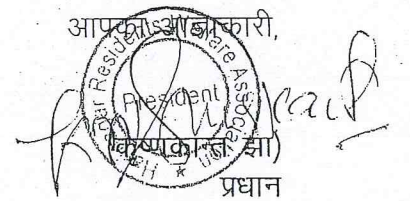 आपका आज्ञाकारी,
Resident's Welfare Association
President
(कृष्णकान्त झा)
प्रधान